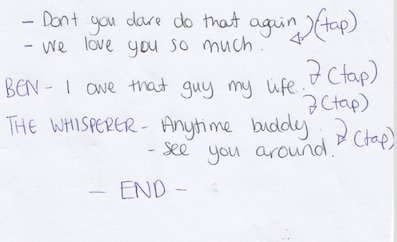 - Dont you dare do that again (tap)
- we love you so much.
BEN - I owe that guy my life. (tap)
(tap)
THE WHISPERER - Anytime buddy
- see you around. (tap)
- END -